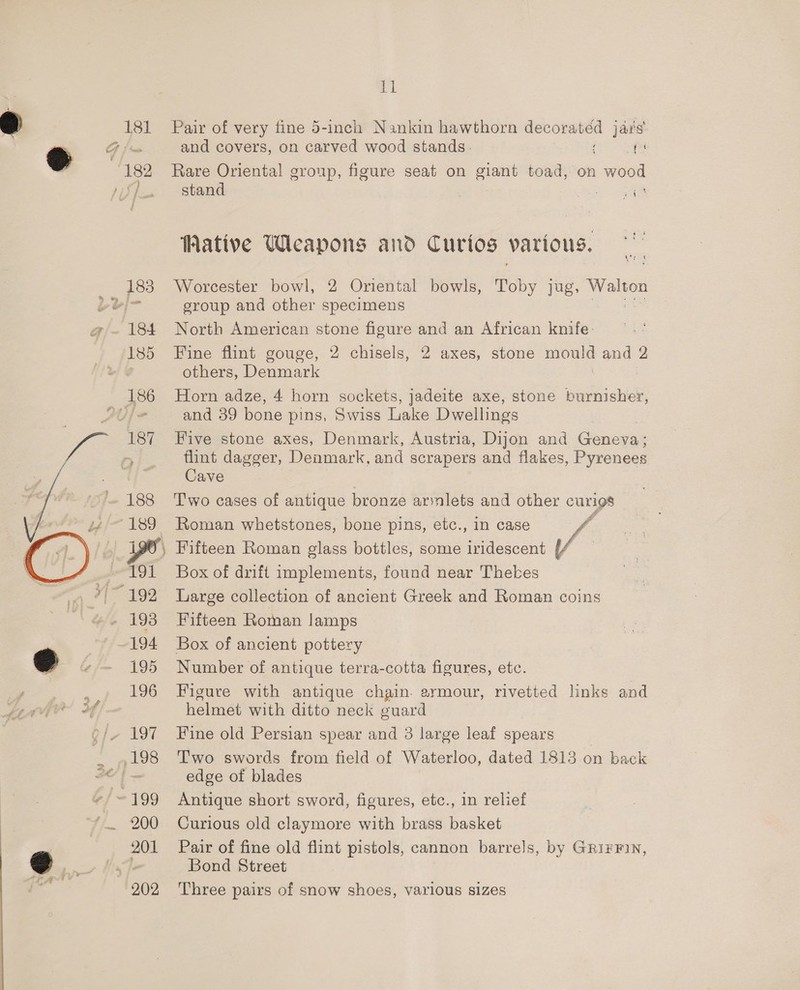 11
181 Pair of very fine 5-inch Nankin hawthorn decorated jars
and covers, on carved wood stands
182 Rare Oriental group, figure seat on giant toad, on wood
stand
Native Weapons and Curios various.
183 Worcester bowl, 2 Oriental bowls, Toby jug, Walton
group and other specimens
184 North American stone figure and an African knife
185 Fine flint gouge, 2 chisels, 2 axes, stone mould and 2
others, Denmark
186 Horn adze, 4 horn sockets, jadeite axe, stone burnisher,
and 39 bone pins, Swiss Lake Dwellings
187 Five stone axes, Denmark, Austria, Dijon and Geneva;
flint dagger, Denmark, and scrapers and flakes, Pyrenees
Cave
188 Two cases of antique bronze armlets and other curios
189 Roman whetstones, bone pins, etc., in case
190 Fifteen Roman glass bottles, some iridescent
191 Box of drift implements, found near Thebes
192 Large collection of ancient Greek and Roman coins
193 Fifteen Roman lamps
194 Box of ancient pottery
195 Number of antique terra-cotta figures, etc.
196 Figure with antique chain armour, rivetted links and
helmet with ditto neck guard
197 Fine old Persian spear and 3 large leaf spears
198 Two swords from field of Waterloo, dated 1813 on back
edge of blades
199 Antique short sword, figures, etc., in relief
200 Curious old claymore with brass basket
201 Pair of fine old flint pistols, cannon barrels, by GRIFFIN,
Bond Street
202 Three pairs of snow shoes, various sizes